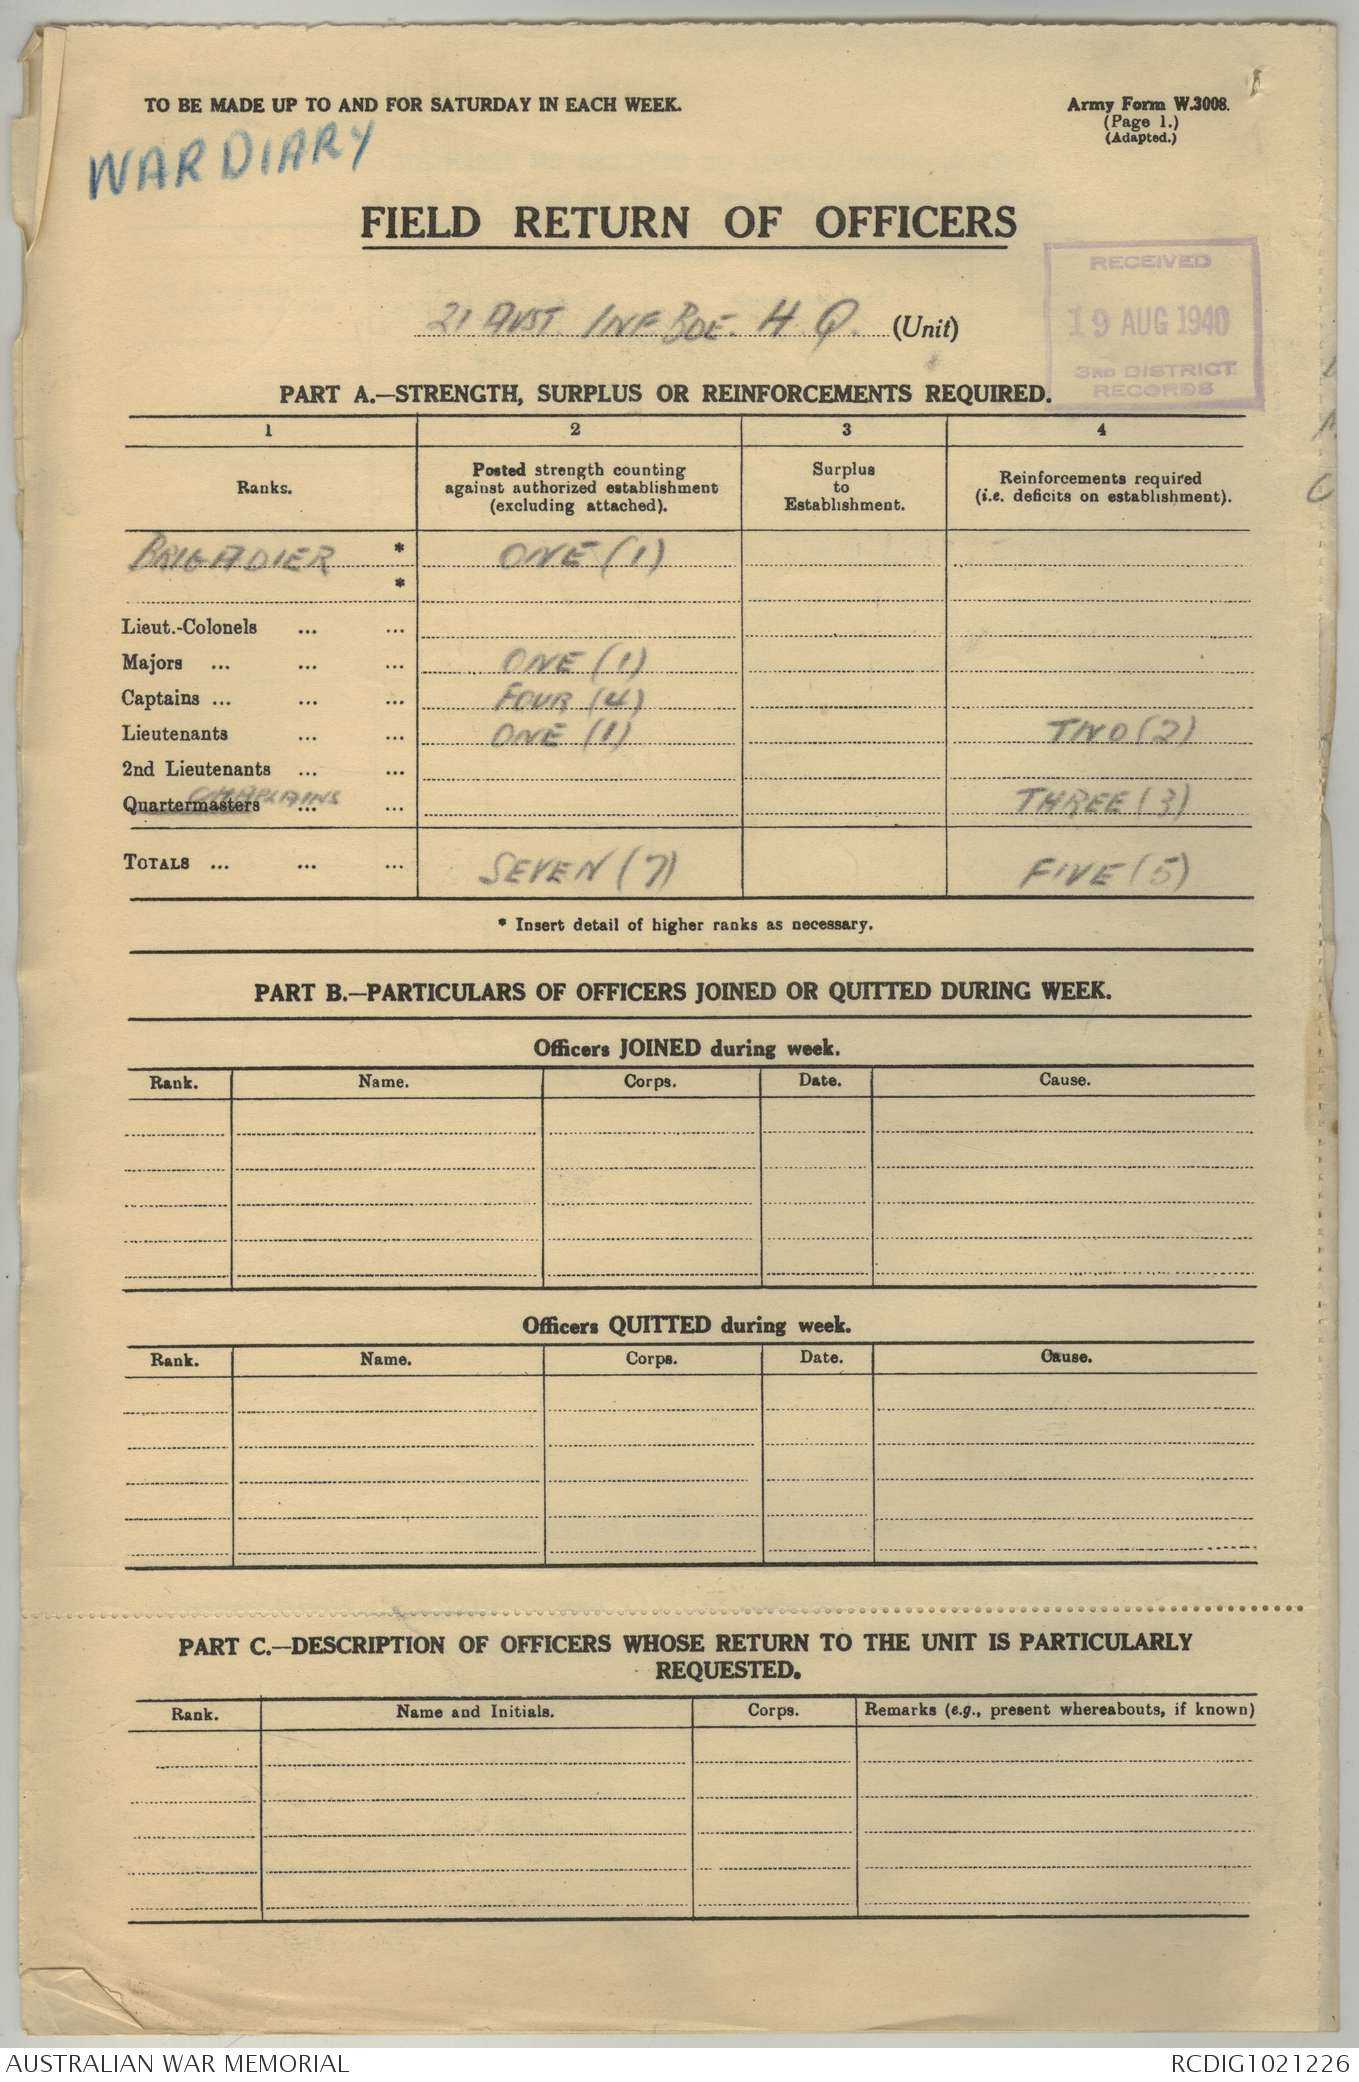 TO BE MADE UP TO AND FOR SATURDAY IN EACH WEEK.
Army Form W.3008.
(Page 1.)
(Adapted.)
WAR DIARY
FIELD RETURN OF OFFICERS
RECEIVED
19 AUG 1940
3RD DISTRICT
RECORDS
21 AUST INF BDE. H.Q. (Unit)
PART A.—STRENGTH, SURPLUS OR REINFORCEMENTS REQUIRED.
1 2 3 4
Ranks.
Posted strength counting
against authorized establishment
(excluding attached).
Surplus
to
Establishment.
Reinforcements required
(i.e. deficits on establishment).
BRIGADIER * ONE (1)
*
Lieut.-Colonels ... ...
Majors ... ... ... ONE (1)
Captains ... ... ... FOUR (4)
Lieutenants ... ... ONE (1) TWO (2)
2nd Lieutenants ... ...
CHAPLAINS
Quartermasters ... ... THREE (3)
TOTALS ... ... ... SEVEN (7) FIVE (5)
* Insert detail of higher ranks as necessary.
PART B.—PARTICULARS OF OFFICERS JOINED OR QUITTED DURING WEEK.
Officers JOINED during week.
Rank. Name. Corps. Date. Cause.
Officers QUITTED during week.
Rank. Name. Corps. Date. Cause.
PART C.—DESCRIPTION OF OFFICERS WHOSE RETURN TO THE UNIT IS PARTICULARLY
REQUESTED.
Rank. Name and Initials. Corps. Remarks (e.g., present whereabouts, if known)
AUSTRALIAN WAR MEMORIAL
RCDIG1021226